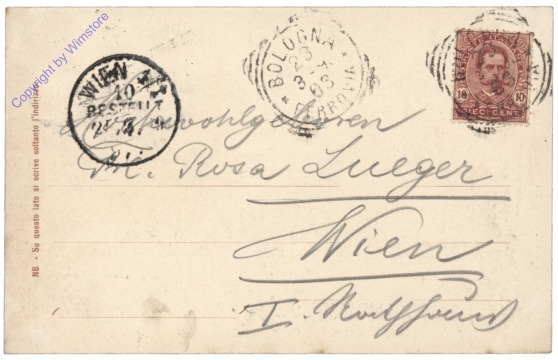 Copyright by Wimstore
NB. - Su questo lato si scrive soltanto l'indirizzo
WIEN
10
BESTELLT
BOLOGNA
23
3-4
03
* FERROVIA *
10 10
DIECI CENT
BOLOGNA
Hochwohlgeboren
Rosa Lueger
Wien
I. Rathhaus